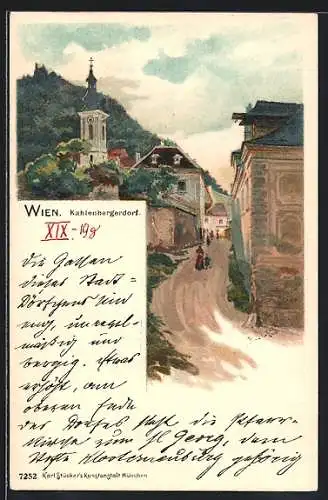 WIEN. Kahlenbergerdorf.
XIX - 198
Die Gassen
dieses Stadt=
Dörfchens sind
eng, unregel-
mäßig und
bergig. Etwas
erhöht, am
oberen Ende
des Dorfes steht die Pfarr-
kirche zum Hl. Georg, dem
Stifte Klosterneuburg gehörig
7252 Karl Stücker's Kunstanstalt München